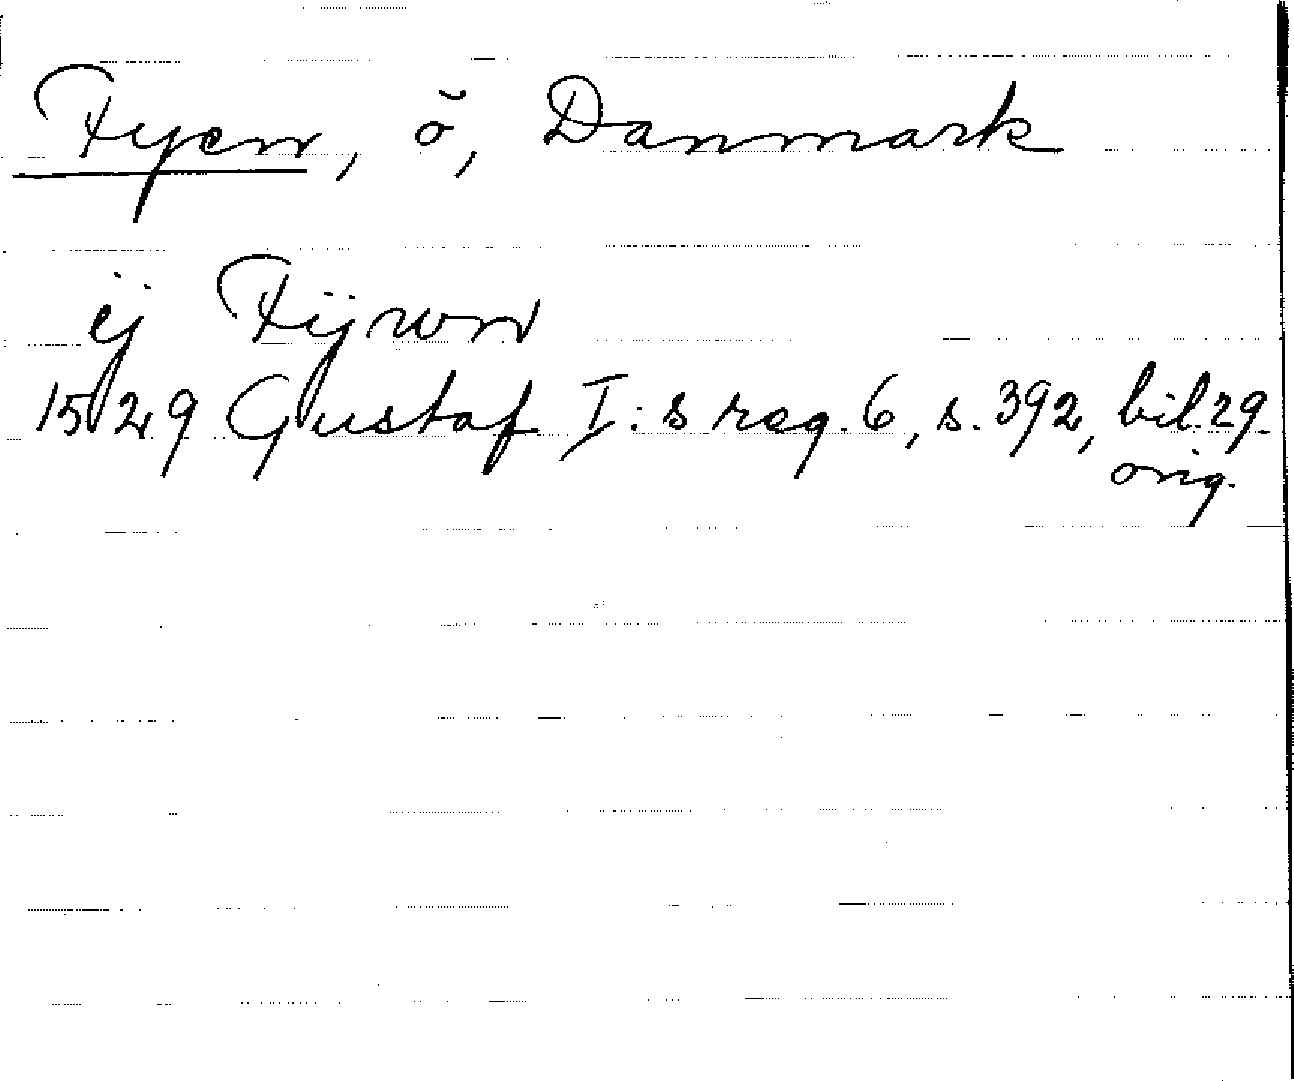 Fyen, ö, Danmark
ij Fÿwn
1529 Gustaf I:s reg. 6, s. 392, bil. 29.
orig.